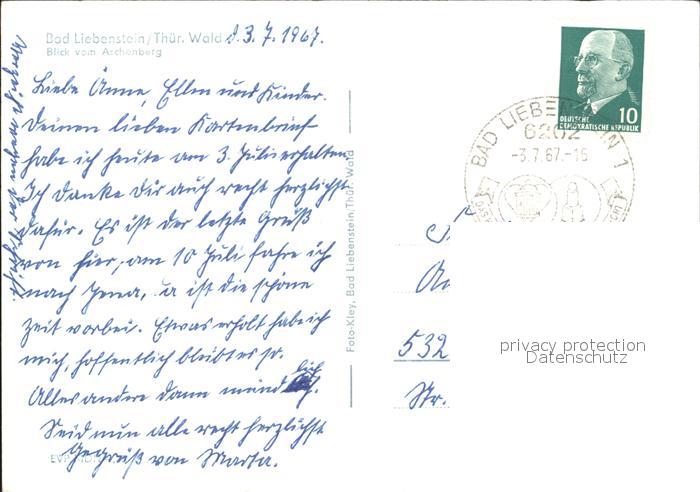 Bad Liebenstein/Thür. Wald d. 3.7.1967.
Blick vom Aschenberg
Liebe Änne, Ellen und Kinder.
Deinen lieben Kartenbrief
habe ich heute am 3. Juli erhalten
Ich danke Dir auch recht herzlichst
dafür. Es ist der letzte Gruß
von hier, am 10 Juli fahre ich
nach Jena, a ist die schöne
Zeit vorbei. Etwas erholt habe ich
mich, hoffentlich bleibt es so.
Alles andere dann münd
lich
Seid nun alle recht herzlichst
gegrüß von Marta.
Foto-Kley, Bad Liebenstein/Thür. Wald
10
DEUTSCHE
DEMOKRATISCHE REPUBLIK
BAD LIEBENSTEIN 1
6202
-3.7.67.-16
532
Str.
privacy protection
Datenschutz